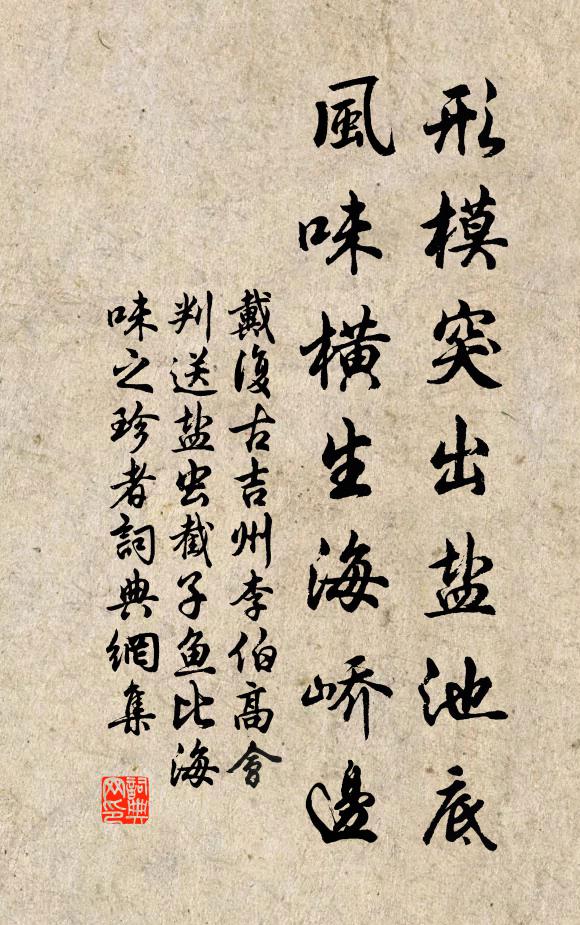 形模突出盐池底
風味橫生海峤邊
戴復古吉州李伯高會
判送盐虫截子魚比海
味之珍者詞典網集
詞典網印